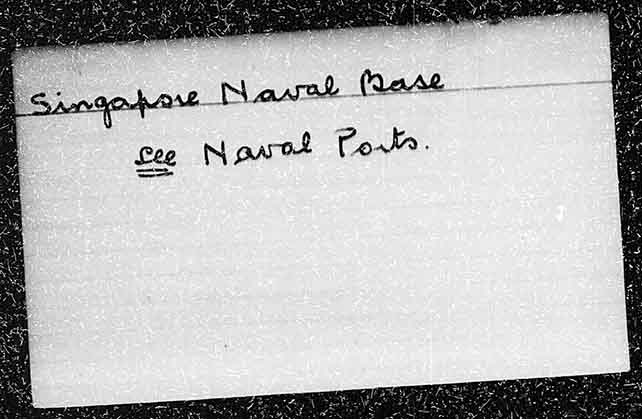 Singapore Naval Base
see Naval Ports.